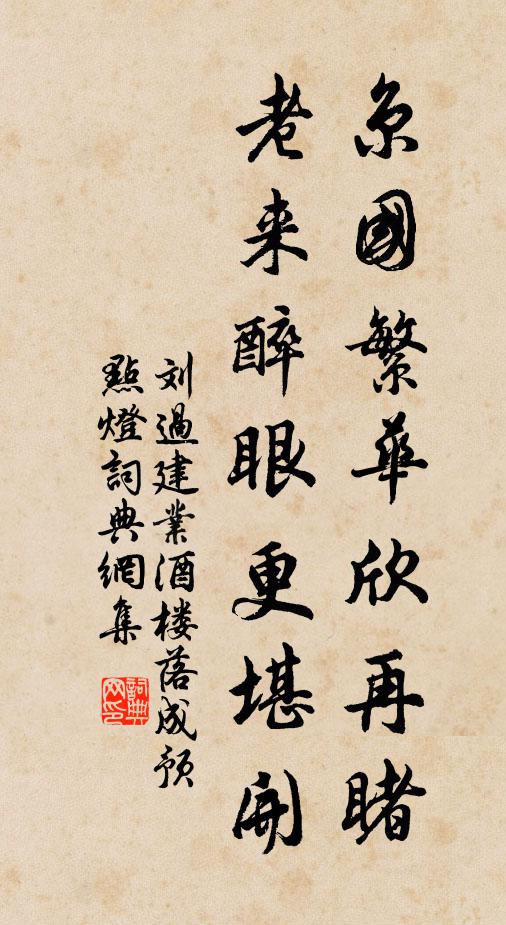 京國繁華欣再睹
老来醉眼更堪開
刘過建業酒楼落成預
點燈詞典網集
詞典
网印